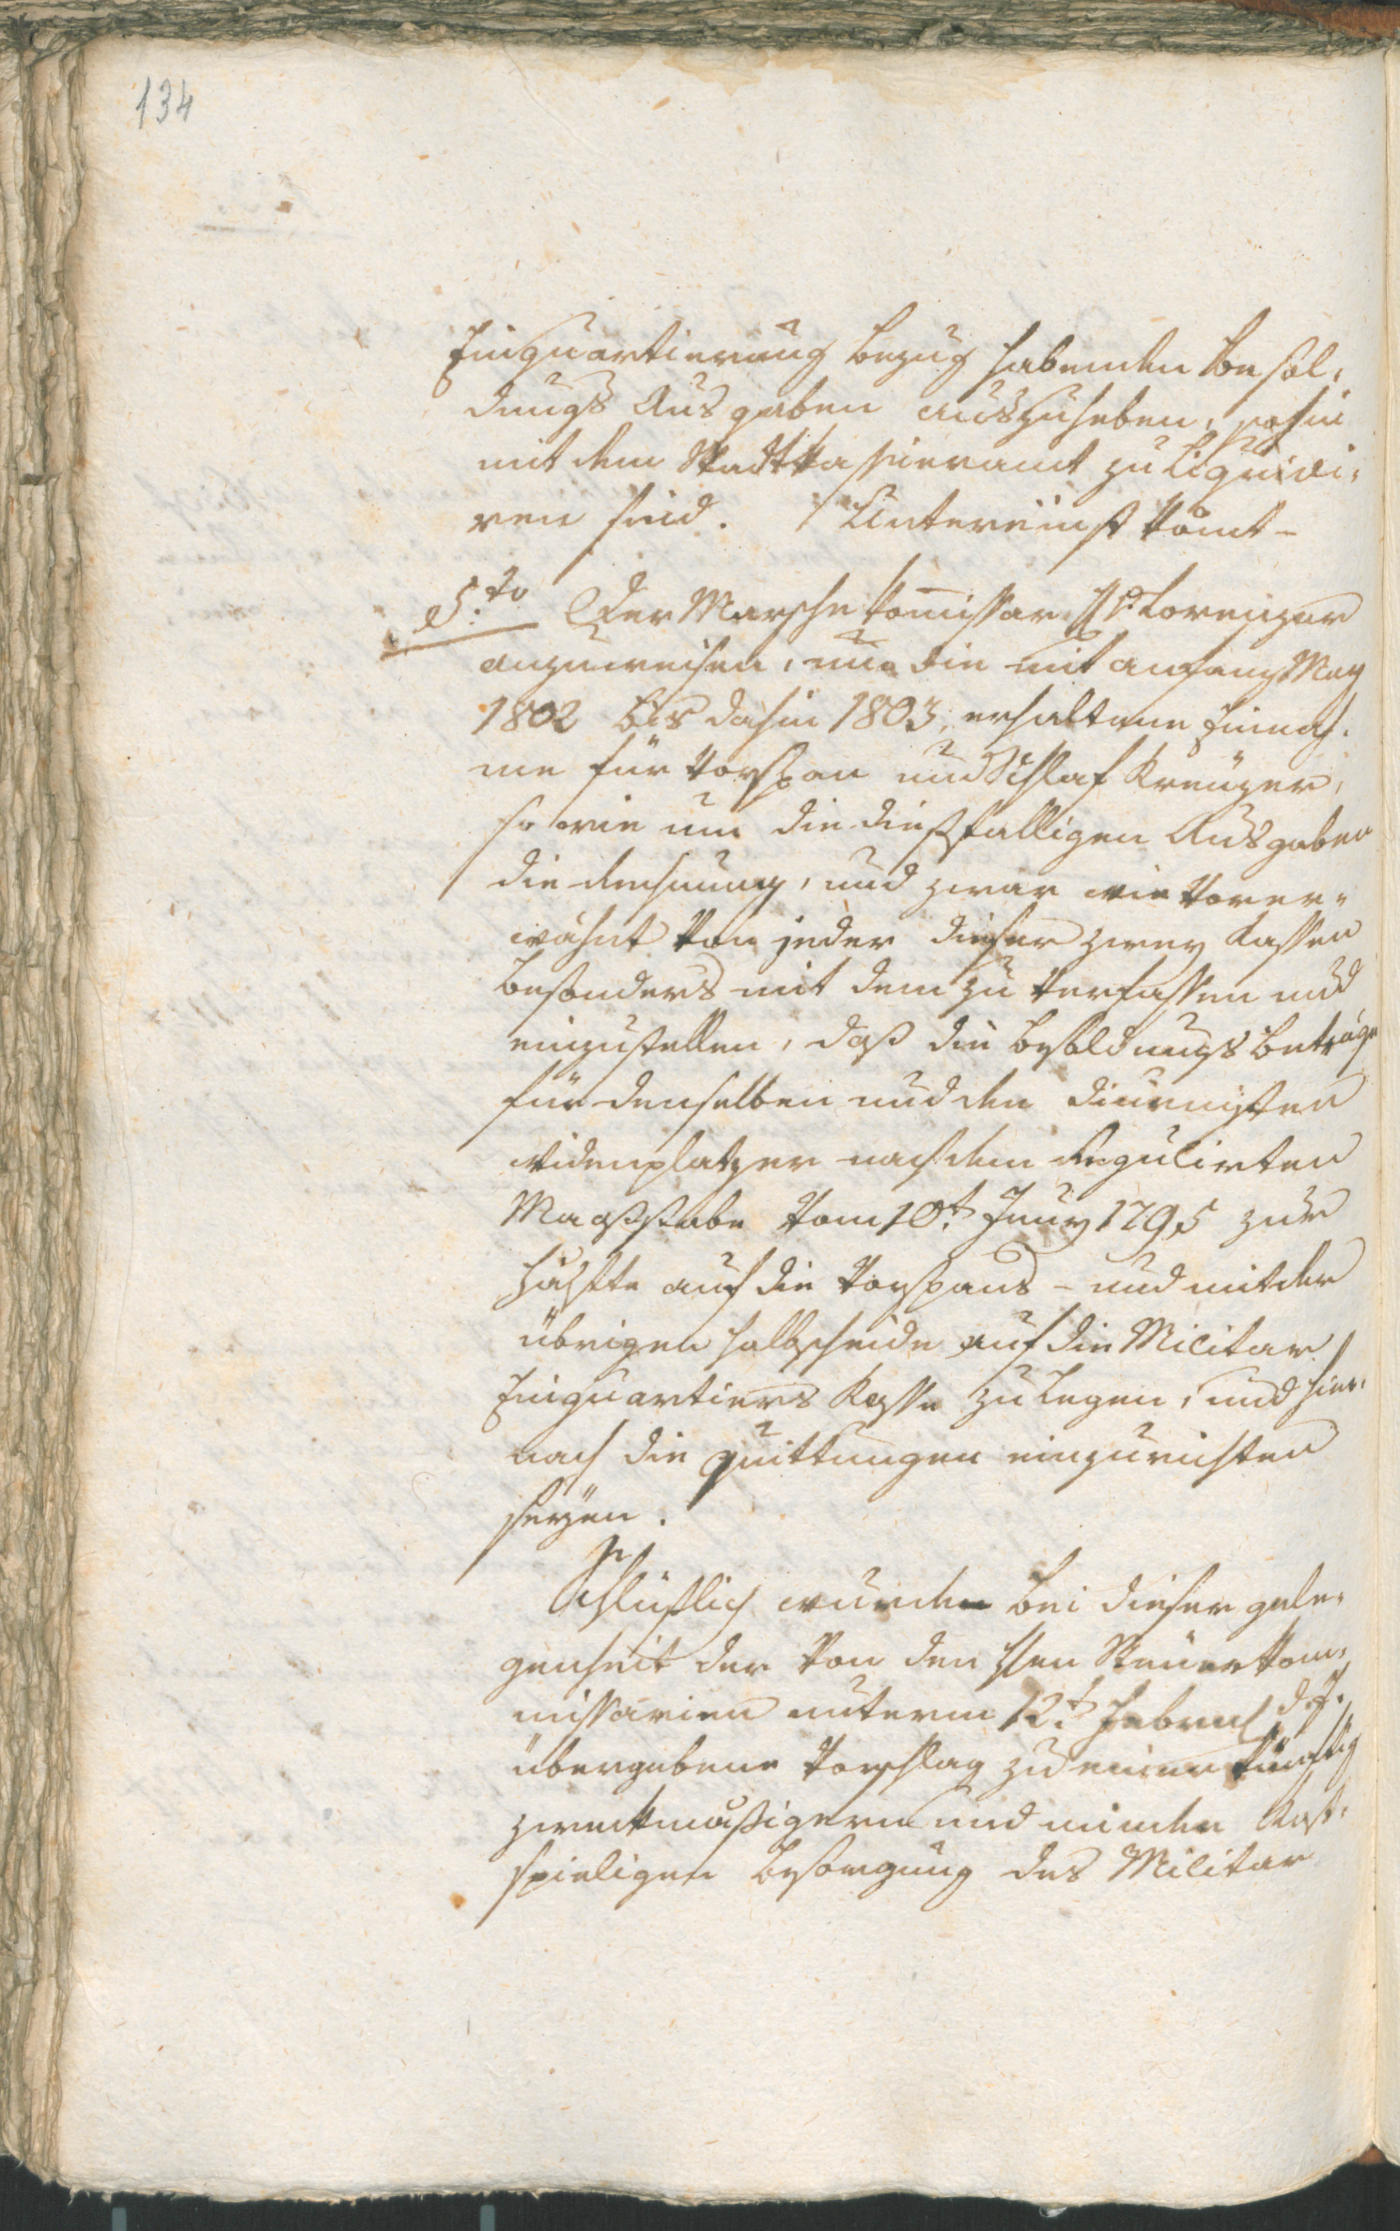 134
Einquartierung bezug habenden besol-
dungs Ausgaben auszuheben, sohin
mit dem Stadtkassieramt zu liquidi-
ren sind. Untereinst kömt-
5.to Der Marsche Komissar Hr. Lorenzer
anzuweisen, um die mit anfang May
1802 bis dahin 1803. erhaltene Einnah-
me für Vorspan und Schlaf Kreuzer,
so wie um die dießfälligen Ausgaben
die Rechnung, und zwar wie Vorer-
wähnt von jeder dieser zwey Kassen
besonders mit dem zu verfassen und
einzustellen, daß die besoldungs beträge
für denselben und den Diurnisten
Widenplatzer nach dem Regulirten
Maaßstabe vom 10.t Juny 1795 zur
Hälfte auf die Vorspans- und mit der
übrigen halbscheide auf die Militar
Einquartiers Kasse zu legen, und hier-
nach die quittungen einzurichten
seyen.
Schlüßlich wurden bei dieser gele-
genheit der von den Hren Steuer Kom-
missarien unterm 12.t Febrner d. J.
übergebene Vorschlag zu einer künftig
zweckmäßigern und minder Kost-
spieligen besorgung des Militar